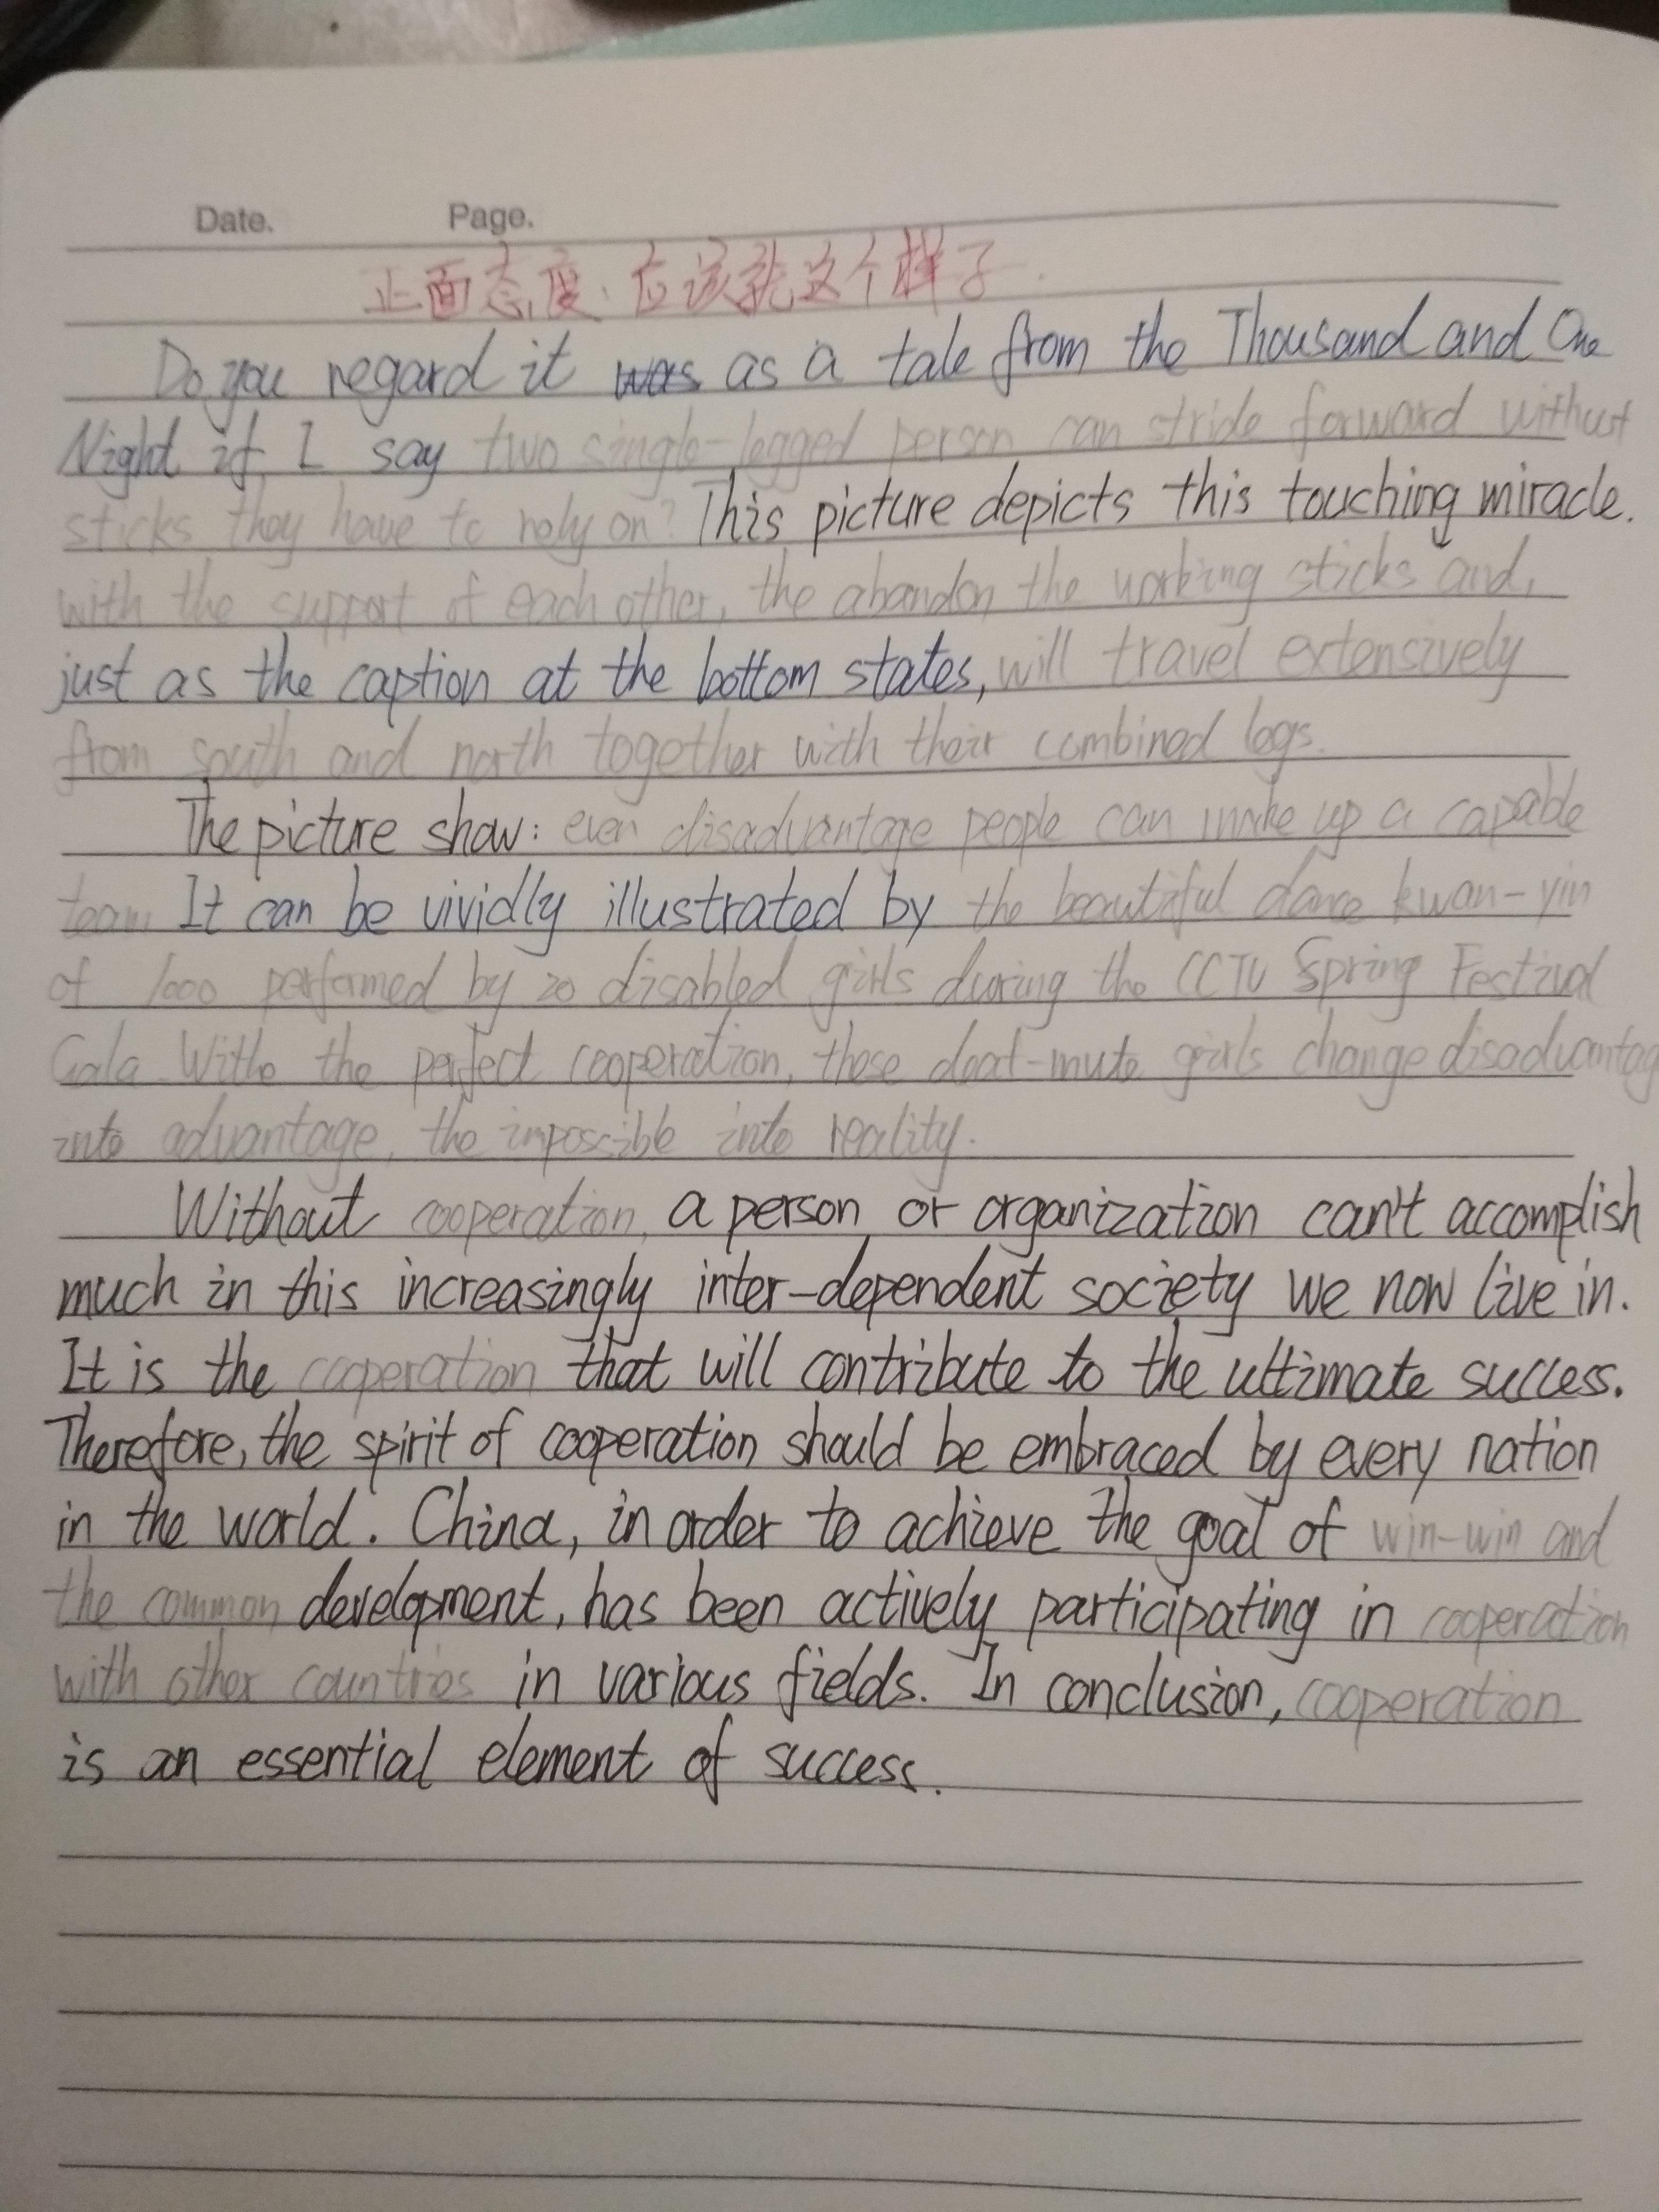 Date. Page.
正面态度、应该就这个样子.
Do you regard it was as a tale from the Thousand and One
Night if I say two single-legged person can stride forward without
sticks they have to rely on? This picture depicts this touching miracle.
with the support of each other, the abandon the working sticks and,
just as the caption at the bottom states, will travel extensively
from south and north together with their combined legs.
The picture show: even disadvantage people can make up a capable
team. It can be vividly illustrated by the beautiful dance kwan-yin
of 1000 performed by 20 disabled girls during the CCTV Spring Festival
Gala. With the perfect cooperation, these deaf-mute girls change disadvantag
into advantage, the impossible into reality.
Without cooperation, a person or organization can't accomplish
much in this increasingly inter-dependent society we now live in.
It is the cooperation that will contribute to the ultimate success.
Therefore, the spirit of cooperation should be embraced by every nation
in the world. China, in order to achieve the goal of win-win and
the common development, has been actively participating in cooperation
with other countries in various fields. In conclusion, cooperation
is an essential element of success.